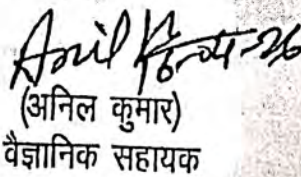 Anil
(अनिल कुमार)
वैज्ञानिक सहायक